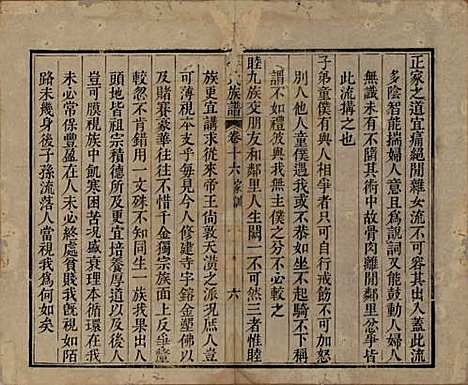 正家之道宜痛絕閒雜女流不可容其出入蓋此流
多陰智能揣婦人意且善為諛詞又能動人婦人
無識未有不隨其術中故骨肉離閒鄰里忿爭皆
此流搆之也
子弟童僕有過只可自行戒飭不可令
別人也他人童僕遇我或不恭如坐不起騎不下稱
謂不如禮彼與我無主僕之分不必較之
睦九族交朋友和鄰里人生闕一不可然三者惟睦
族譜 卷十六 家訓 六
族更宜講求從來帝王尚敦天潢之派况庶人豈
可薄視本支乎每見今人修建寺宇鎔金塑佛以
及賭賽豪華往往不惜千金獨宗族面上反垂
較忽然不肯錯用一文殊不知同生一族我果出人
頭地皆祖宗積德所致更宜培養厚道以及後人
豈可膜視族中飢寒困苦哉盛衰理本循環在我
未必常保豐盈在人未必終處貧賤我既視如陌
路未幾身後子孫流落人當視我為何如矣